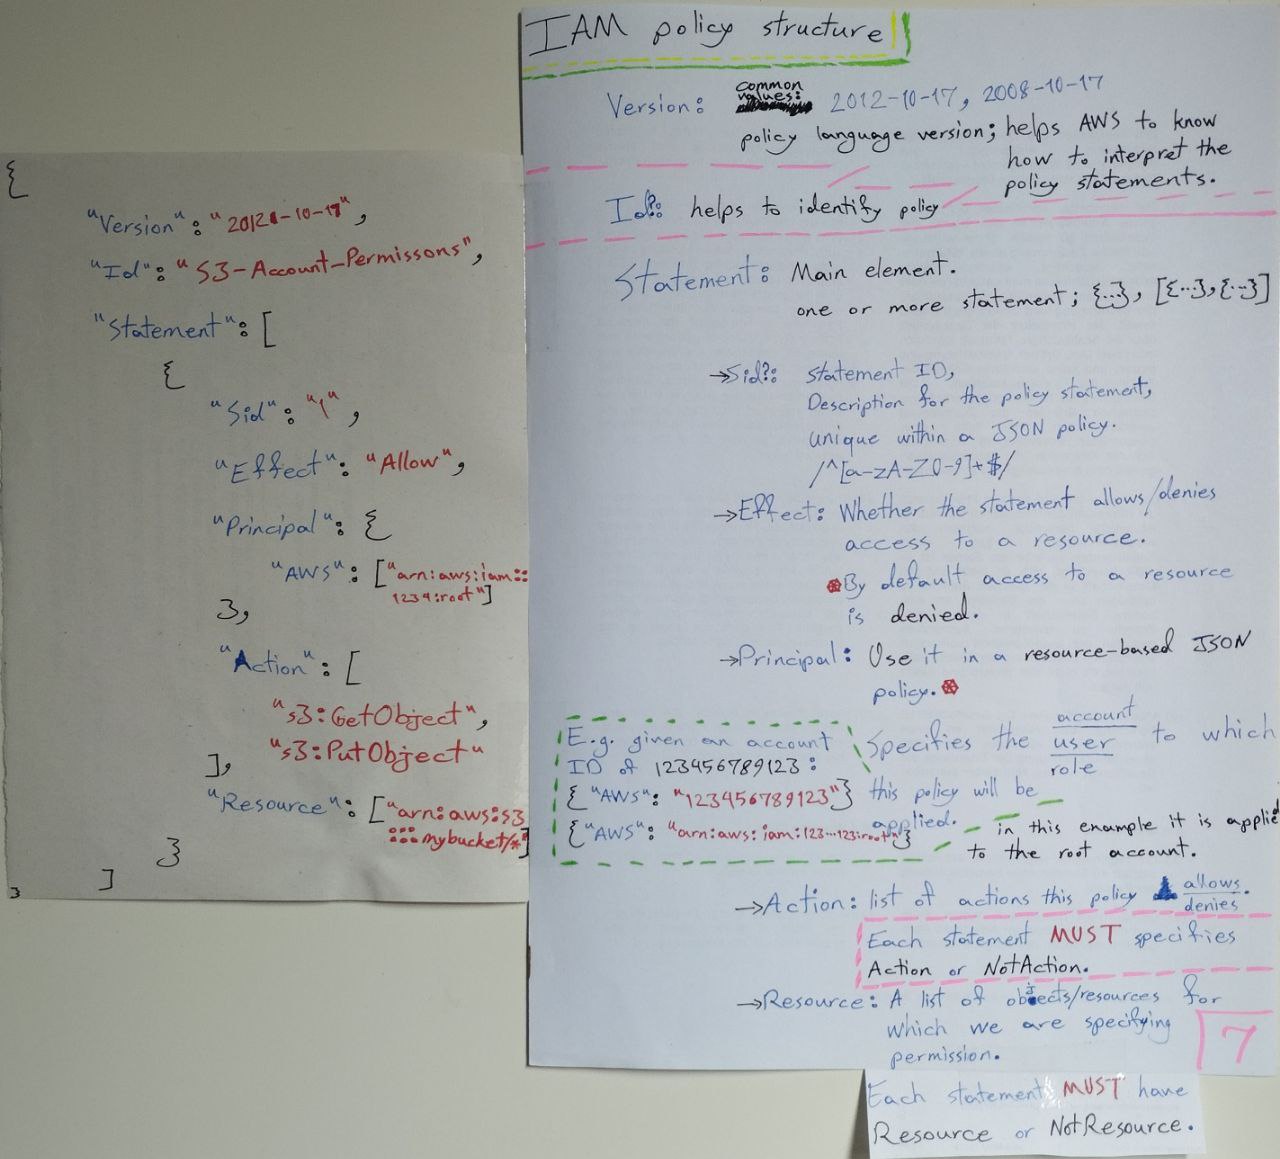 {
"Version": "2012-10-17",
"Id": "S3-Account-Permissons",
"Statement": [
{
"Sid": "1",
"Effect": "Allow",
"Principal": {
"AWS": ["arn:aws:iam::
1234:root"]
},
"Action": [
"s3:GetObject",
"s3:PutObject"
],
"Resource": ["arn:aws:s3
:::mybucket/*"]
}
]
}
IAM policy structure
Version: common values: 2012-10-17, 2008-10-17
policy language version; helps AWS to know
how to interpret the
policy statements.
Id?: helps to identify policy
Statement: Main element.
one or more statement; {...}, [{...},{...}]
→Sid?: statement ID,
Description for the policy statement,
unique within a JSON policy.
/^[a-zA-Z0-9]+$/
→Effect: Whether the statement allows/denies
access to a resource.
By default access to a resource
is denied.
→Principal: Use it in a resource-based JSON
policy.
Specifies the account
user
role
to which
this policy will be
applied.
E.g. given an account
ID of 123456789123:
{"AWS": "123456789123"}
{"AWS": "arn:aws:iam:123...123:root"}
in this example it is applied
to the root account.
→Action: list of actions this policy allows
denies.
Each statement MUST specifies
Action or NotAction.
→Resource: A list of objects/resources for
which we are specifying
permission.
7
Each statement MUST have
Resource or NotResource.